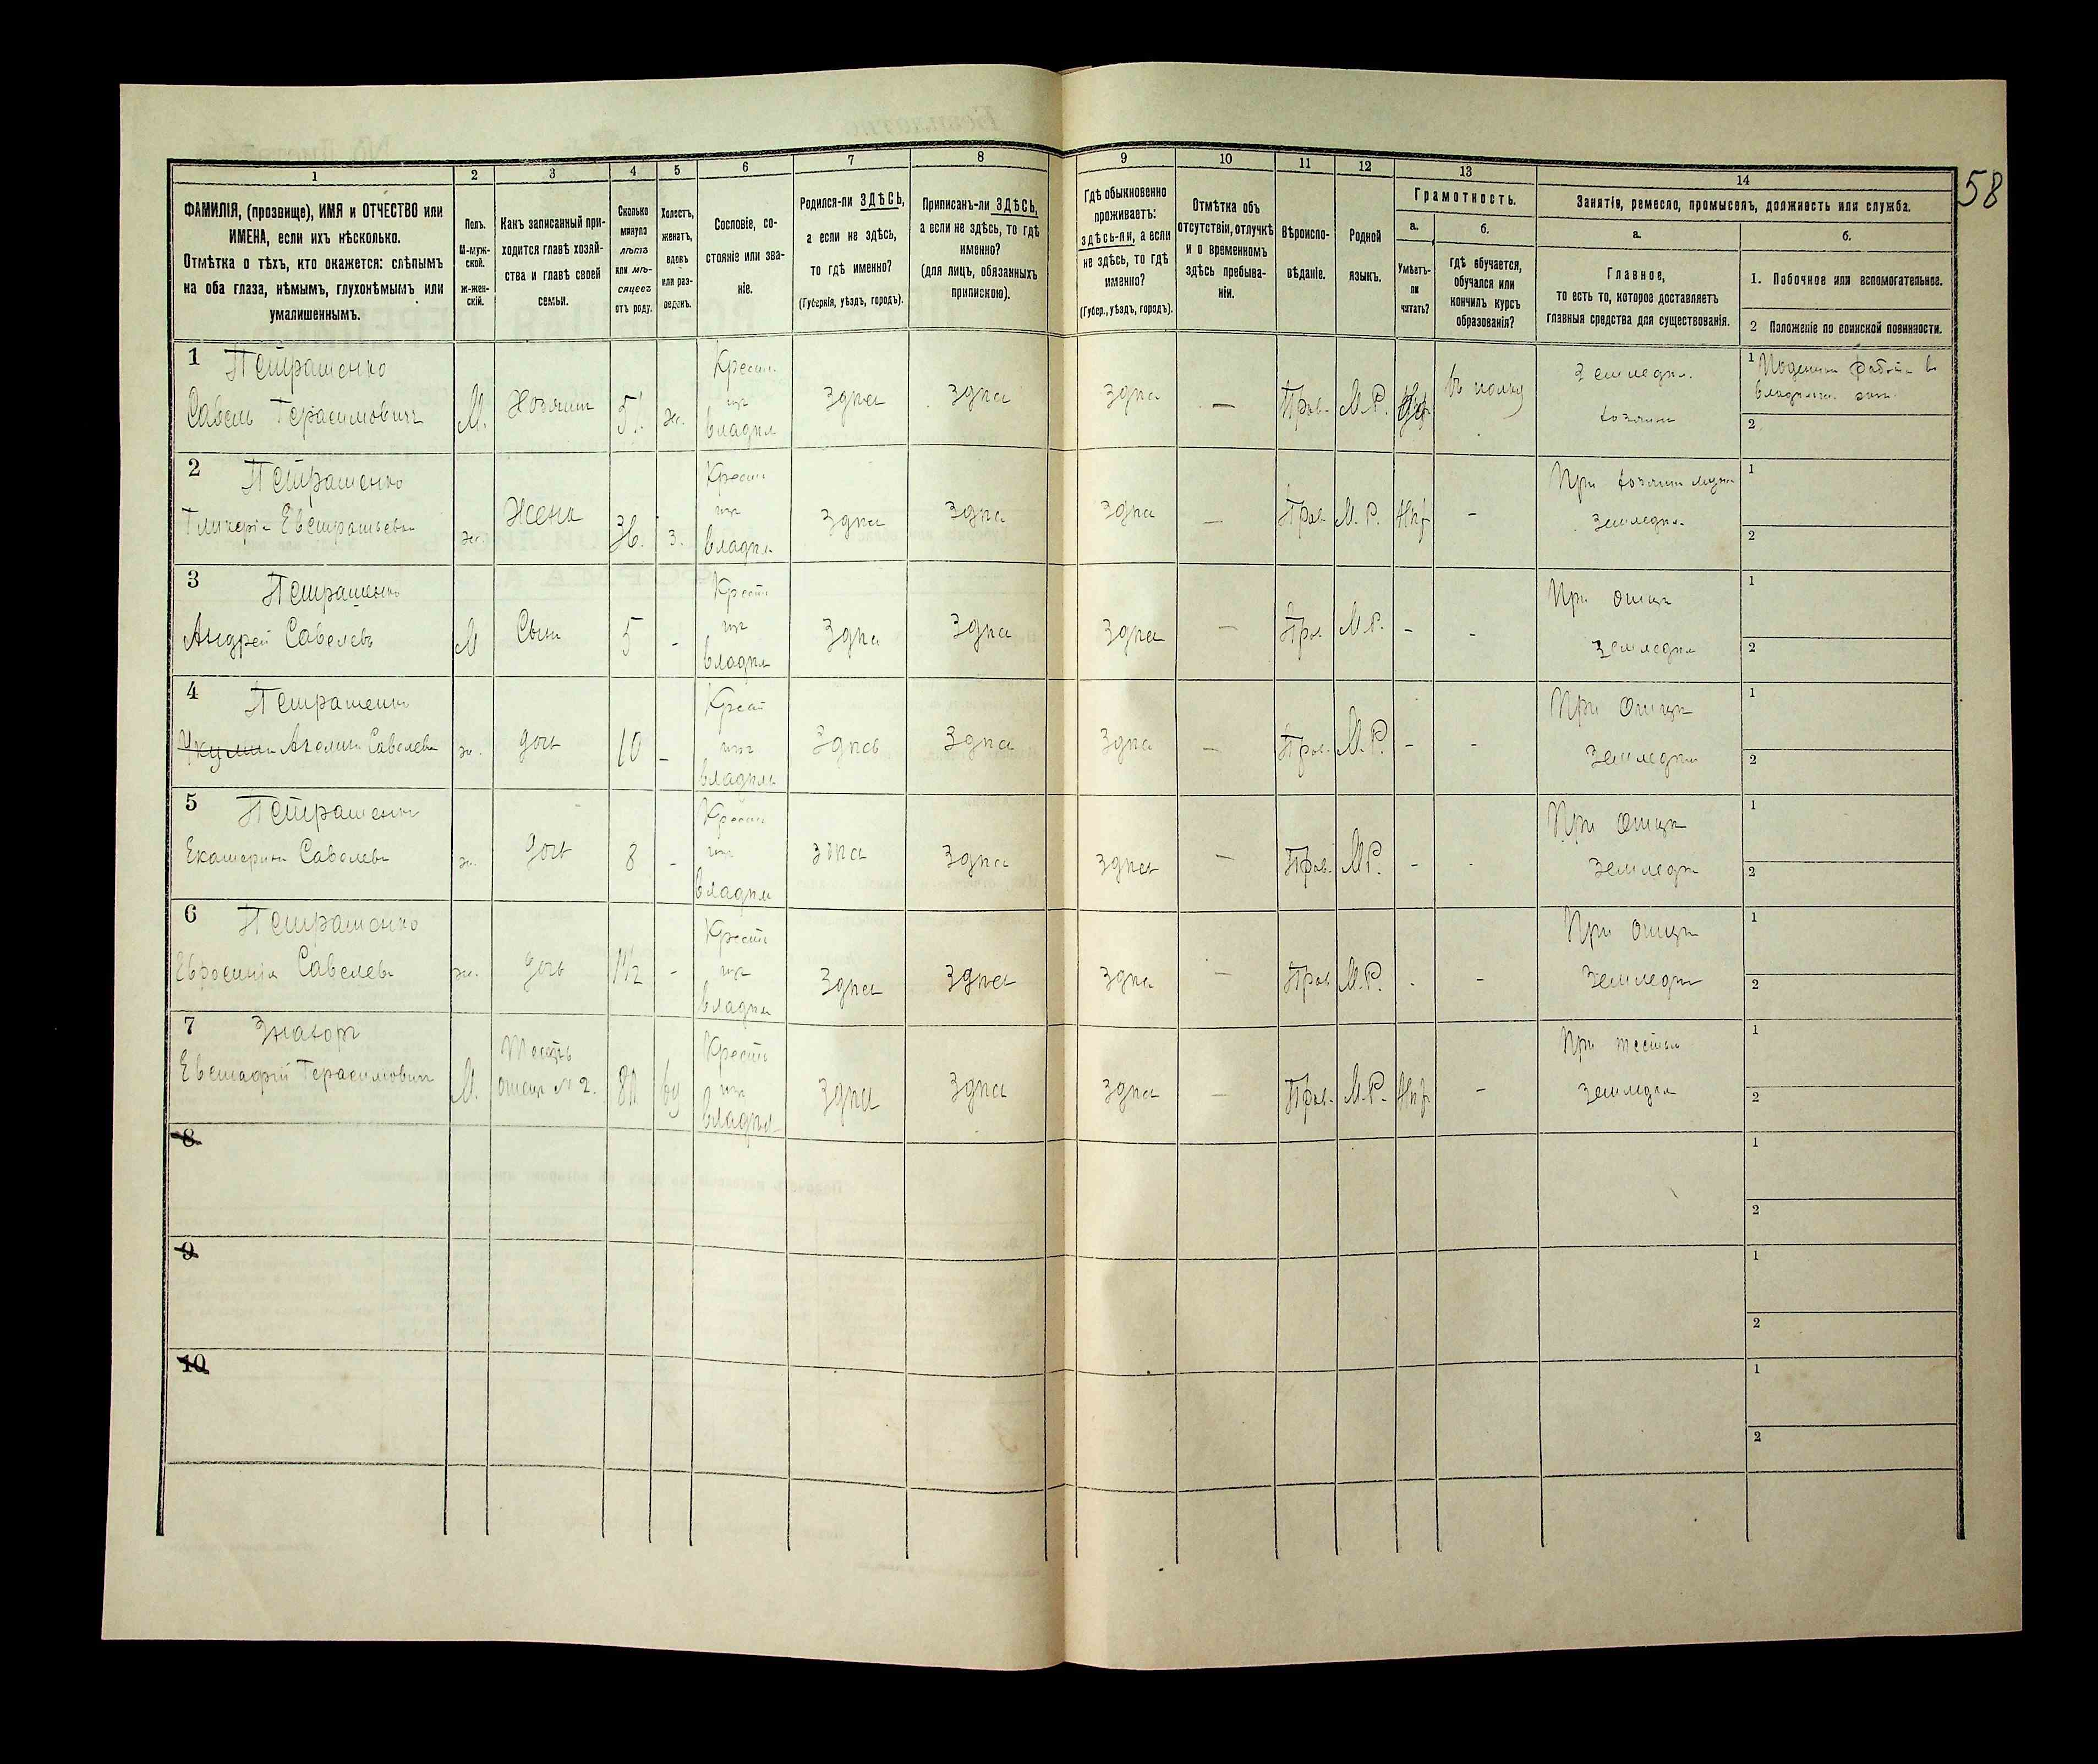 58
1 2 3 4 5 6 7 8 9 10 11 12 13 14
ФАМИЛІЯ, (прозвище), ИМЯ и ОТЧЕСТВО или
ИМЕНА, если ихъ нѣсколько.
Отмѣтка о тѣхъ, кто окажется: слѣпымъ
на оба глаза, нѣмымъ, глухонѣмымъ или
умалишеннымъ.
Полъ.
М-муж-
ской.
ж-жен-
скій.
Какъ записанный при-
ходится главѣ хозяй-
ства и главѣ своей
семьи.
Сколько
минуло
лѣтъ
или мѣ-
сяцевъ
отъ роду.
Холостъ,
женатъ,
вдовъ
или раз-
веденъ.
Сословіе, со-
стояніе или зва-
ніе.
Родился-ли ЗДѢСЬ,
а если не здѣсь,
то гдѣ именно?
(Губернія, уѣздъ, городъ).
Приписанъ-ли ЗДѢСЬ,
а если не здѣсь, то гдѣ
именно?
(для лицъ, обязанныхъ
припискою).
Гдѣ обыкновенно
проживаетъ:
здѣсь-ли, а если
не здѣсь, то гдѣ
именно?
(Губер., уѣздъ, городъ).
Отмѣтка объ
отсутствіи, отлучкѣ
и о временномъ
здѣсь пребыва-
ніи.
Вѣроиспо-
вѣданіе.
Родной
языкъ.
Грамотность.
а.
Умѣетъ-
ли
читать?
б.
гдѣ обучается,
обучался или
кончилъ курсъ
образованія?
Занятіе, ремесло, промыселъ, должность или служба.
а.
Главное,
то есть то, которое доставляетъ
главныя средства для существованія.
б.
1. Побочное или вспомогательное.
2 Положеніе по воинской повинности.
1 Петрашенко
Савель Герасимович М. Хозяин ж. Крест. из владѣл здѣсь здѣсь здѣсь — Прав. М.Р. въ полку Земледѣл. хозяин
1
2
2 Петрашенко
Гликерія Евстратьева ж. Жена 36. з. Крест из владѣл здѣсь здѣсь здѣсь — Прав. М.Р. Нѣт - При Земледѣл.
1
2
3 Петрашенко
Андрей Савелевъ М Сын 5 - Крест из владѣл здѣсь здѣсь здѣсь — Прав. М.Р. - - При отцѣ Земледѣл
1
2
4 Петрашенко
Савелева ж. дочь 10 - Крест из владѣл здѣсь здѣсь здѣсь — Прав. М.Р. - - При отцѣ Земледѣл
1
2
5 Петрашенко
Екатерина Савелева ж. дочь 8 - Крест из владѣл здѣсь здѣсь здѣсь — Прав. М.Р. - - При отцѣ Земледѣл
1
2
6 Петрашенко
Евфросинія Савелева ж. дочь 1½ - Крест из владѣл здѣсь здѣсь здѣсь — Прав. М.Р. - - При отцѣ Земледѣл
1
2
7 Знахоръ
Герасимович М. Тесть отец № 2. 80 вд Крест из владѣл здѣсь здѣсь здѣсь — Прав. М.Р. Нѣт - При Земледѣл
1
2
8
1
2
9
1
2
10
1
2